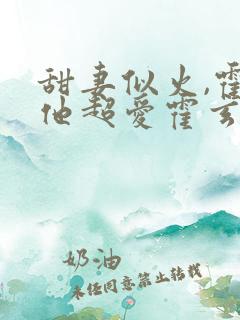 甜妻似火,霍
他超爱霍玄
奶油
未经同意禁止转载